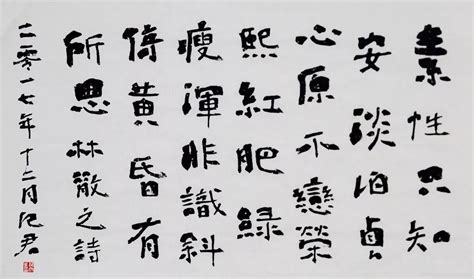 素性只知
安淡泊貞
心原不戀榮
熙紅肥綠
瘦渾非識斜
倚黃昏有
所思林散之詩
二零一七年十二月君